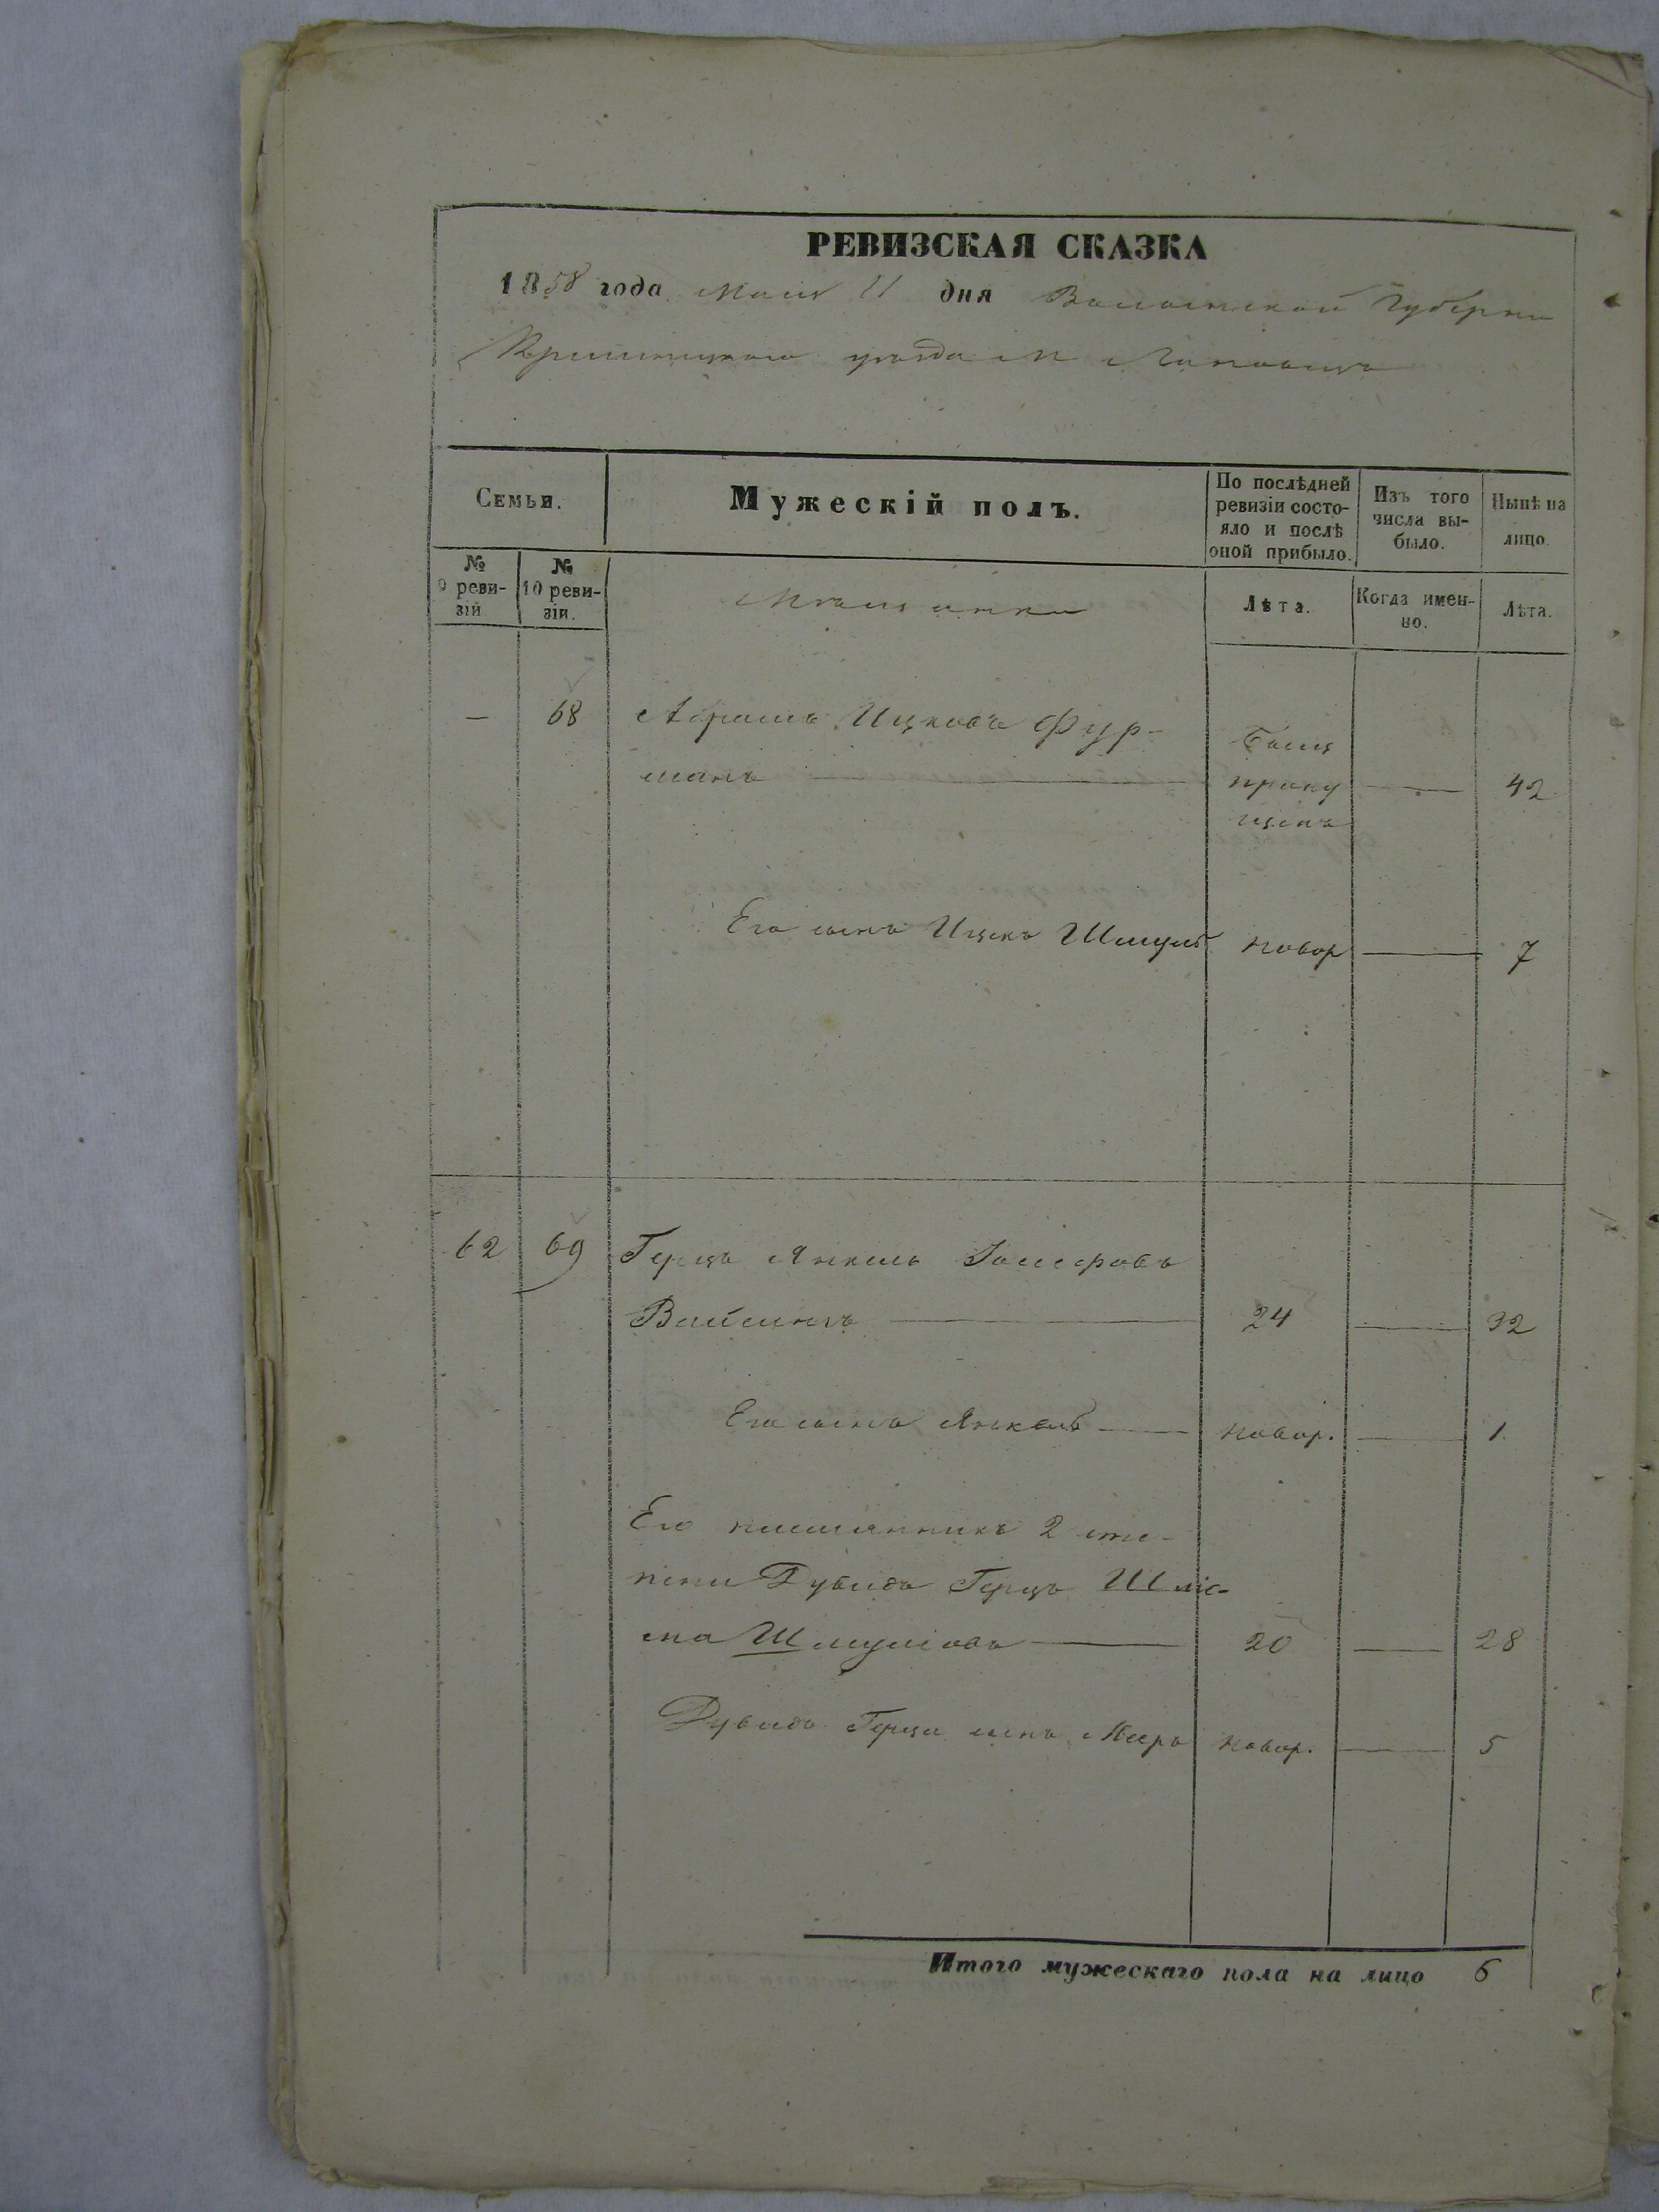 РЕВИЗСКАЯ СКАЗКА
1858 года Мая 11 дня Волынской Губерни
Кременецкого уезда М Лановецъ
Семьи.
Мужескій полъ.
По послѣдней ревизіи состо-
яло и послѣ
оной прибыло.
Изъ того
числа вы-
было.
Нынѣ на
лицо.
№
9 реви-
зій
№
10 реви-
зіи.
Мѣщанки
Лѣта.
Когда имен-
но.
Лѣта.
— 68 Абрамъ Ицковъ Фур-
манъ
Былъ
пропу
щенъ
42
Его сынъ Ицко Шмуль новор 7
62 69 Герцъ Янкель Іосефовъ
Вайсинъ 24 32
Его сынъ Янкель новор. 1
Его племянникъ 2 сте-
пени Дувидъ Герцъ Шліо-
ма Шмулiовъ 20 28
Дувидъ Герца сынъ Мееръ новор. 5
Итого мужескаго пола на лицо 6